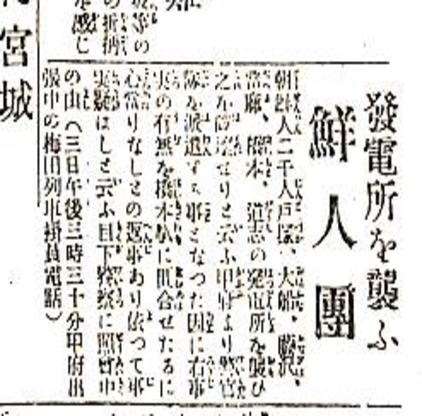 發電所を襲ふ
鮮人團
朝鮮人二千人戸塚、大船、藤沢、
當麻、橋本、道志の発電所を襲ひ
之をせりと云ふ甲府より警官
隊を派遣する事となつた因に右事
実の有無を橋本駅に問合せたるに
心當りなしとの返事あり依つて事
実疑はしと云ふ目下警察に照會中
の由（三日午後三時三十分甲府出
張中の梅田列車掛員電話）
等の
の折柄
を感じ
宮城